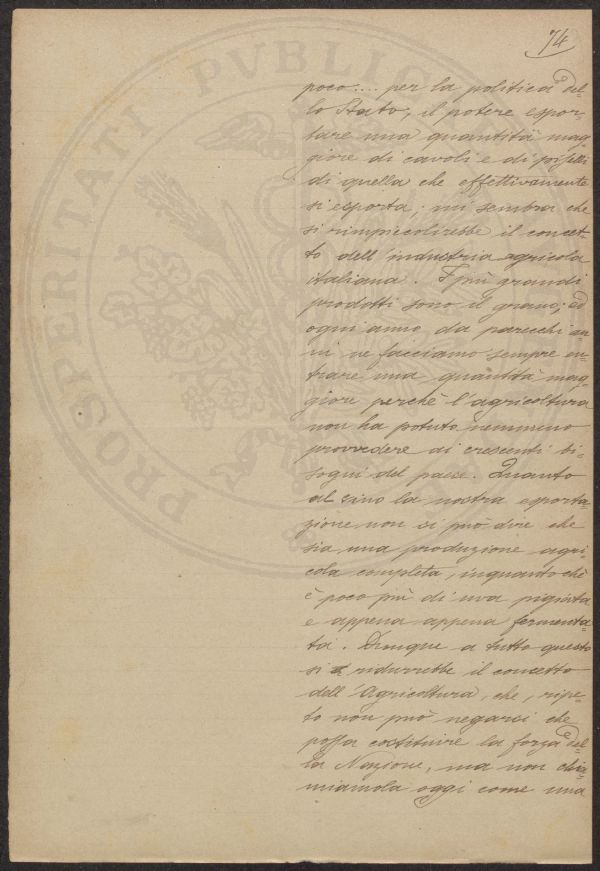 74
PROSPERITATI PVBLIC
poco.... per la politica del-
lo Stato, il potere espor-
tare una quantità mag-
giore di cavoli e di piselli
di quella che effettivamente
si esporta; mi sembra che
si rimpiccolirebbe il concet-
to dell'industria agricola
italiana. I più grandi
prodotti sono il grano; ed
ogni anno da parecchi an-
ni ne facciamo sempre en-
trare una quantità mag-
giore perchè l'agricoltura
non ha potuto nemmeno
provvedere ai crescenti bi-
sogni del paese. Quanto
al vino la nostra esporta-
zione non si può dire che
sia una produzione agri-
cola completa, inquantochè
è poco più di uva pigiata
e appena appena fermenta-
ta. Dunque a tutto questo
si ridurrebbe il concetto
dell'Agricoltura, che, ripe-
to non può negarsi che
possa costituire la forza del-
la Nazione, ma non chia-
miamola oggi come una